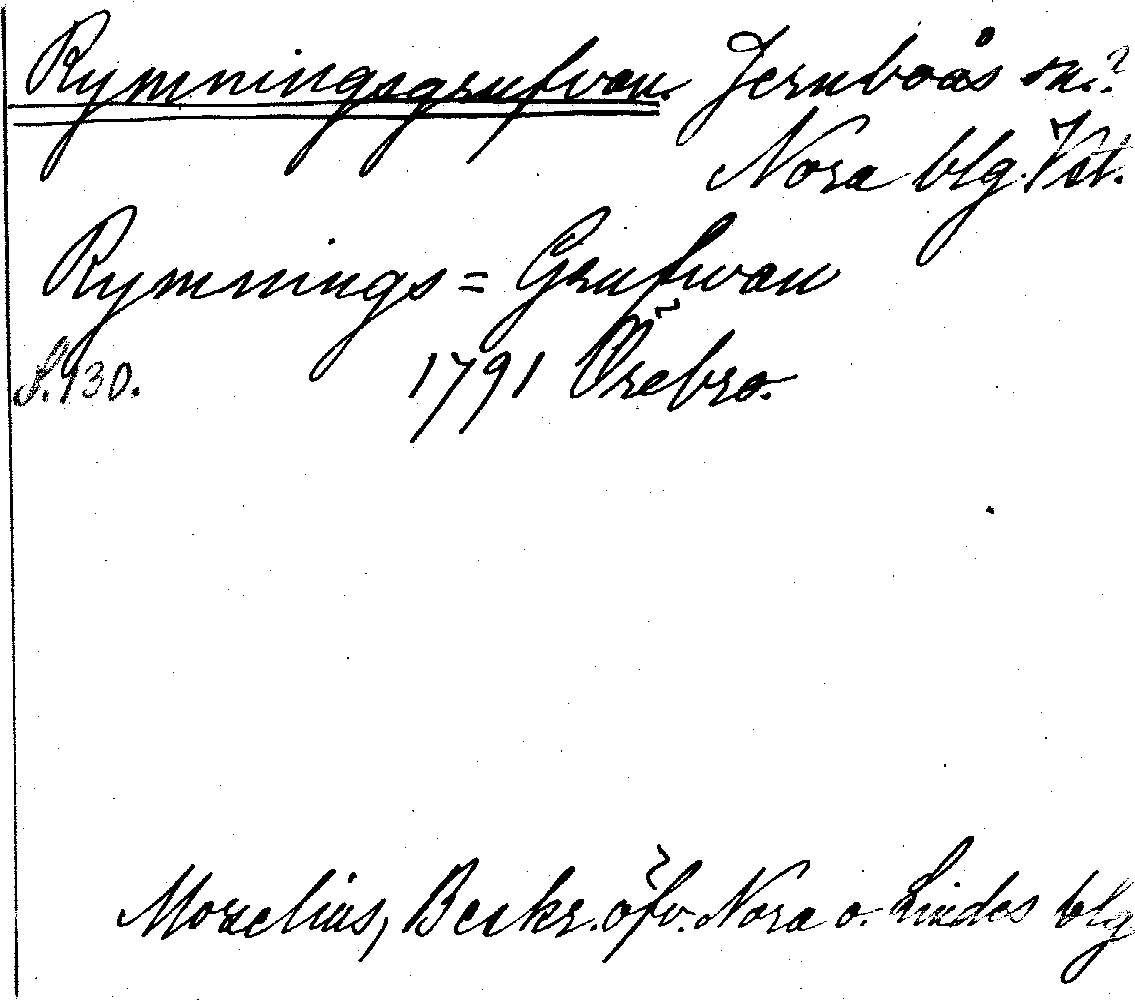 Rymningsgrufvan. Jernboås sn.?
Nora blg. Vstl.
Rymnings=Grufwan
S. 130. 1791 Örebro.
Morelius, Beskr. öfv. Nora o. Lindes blg